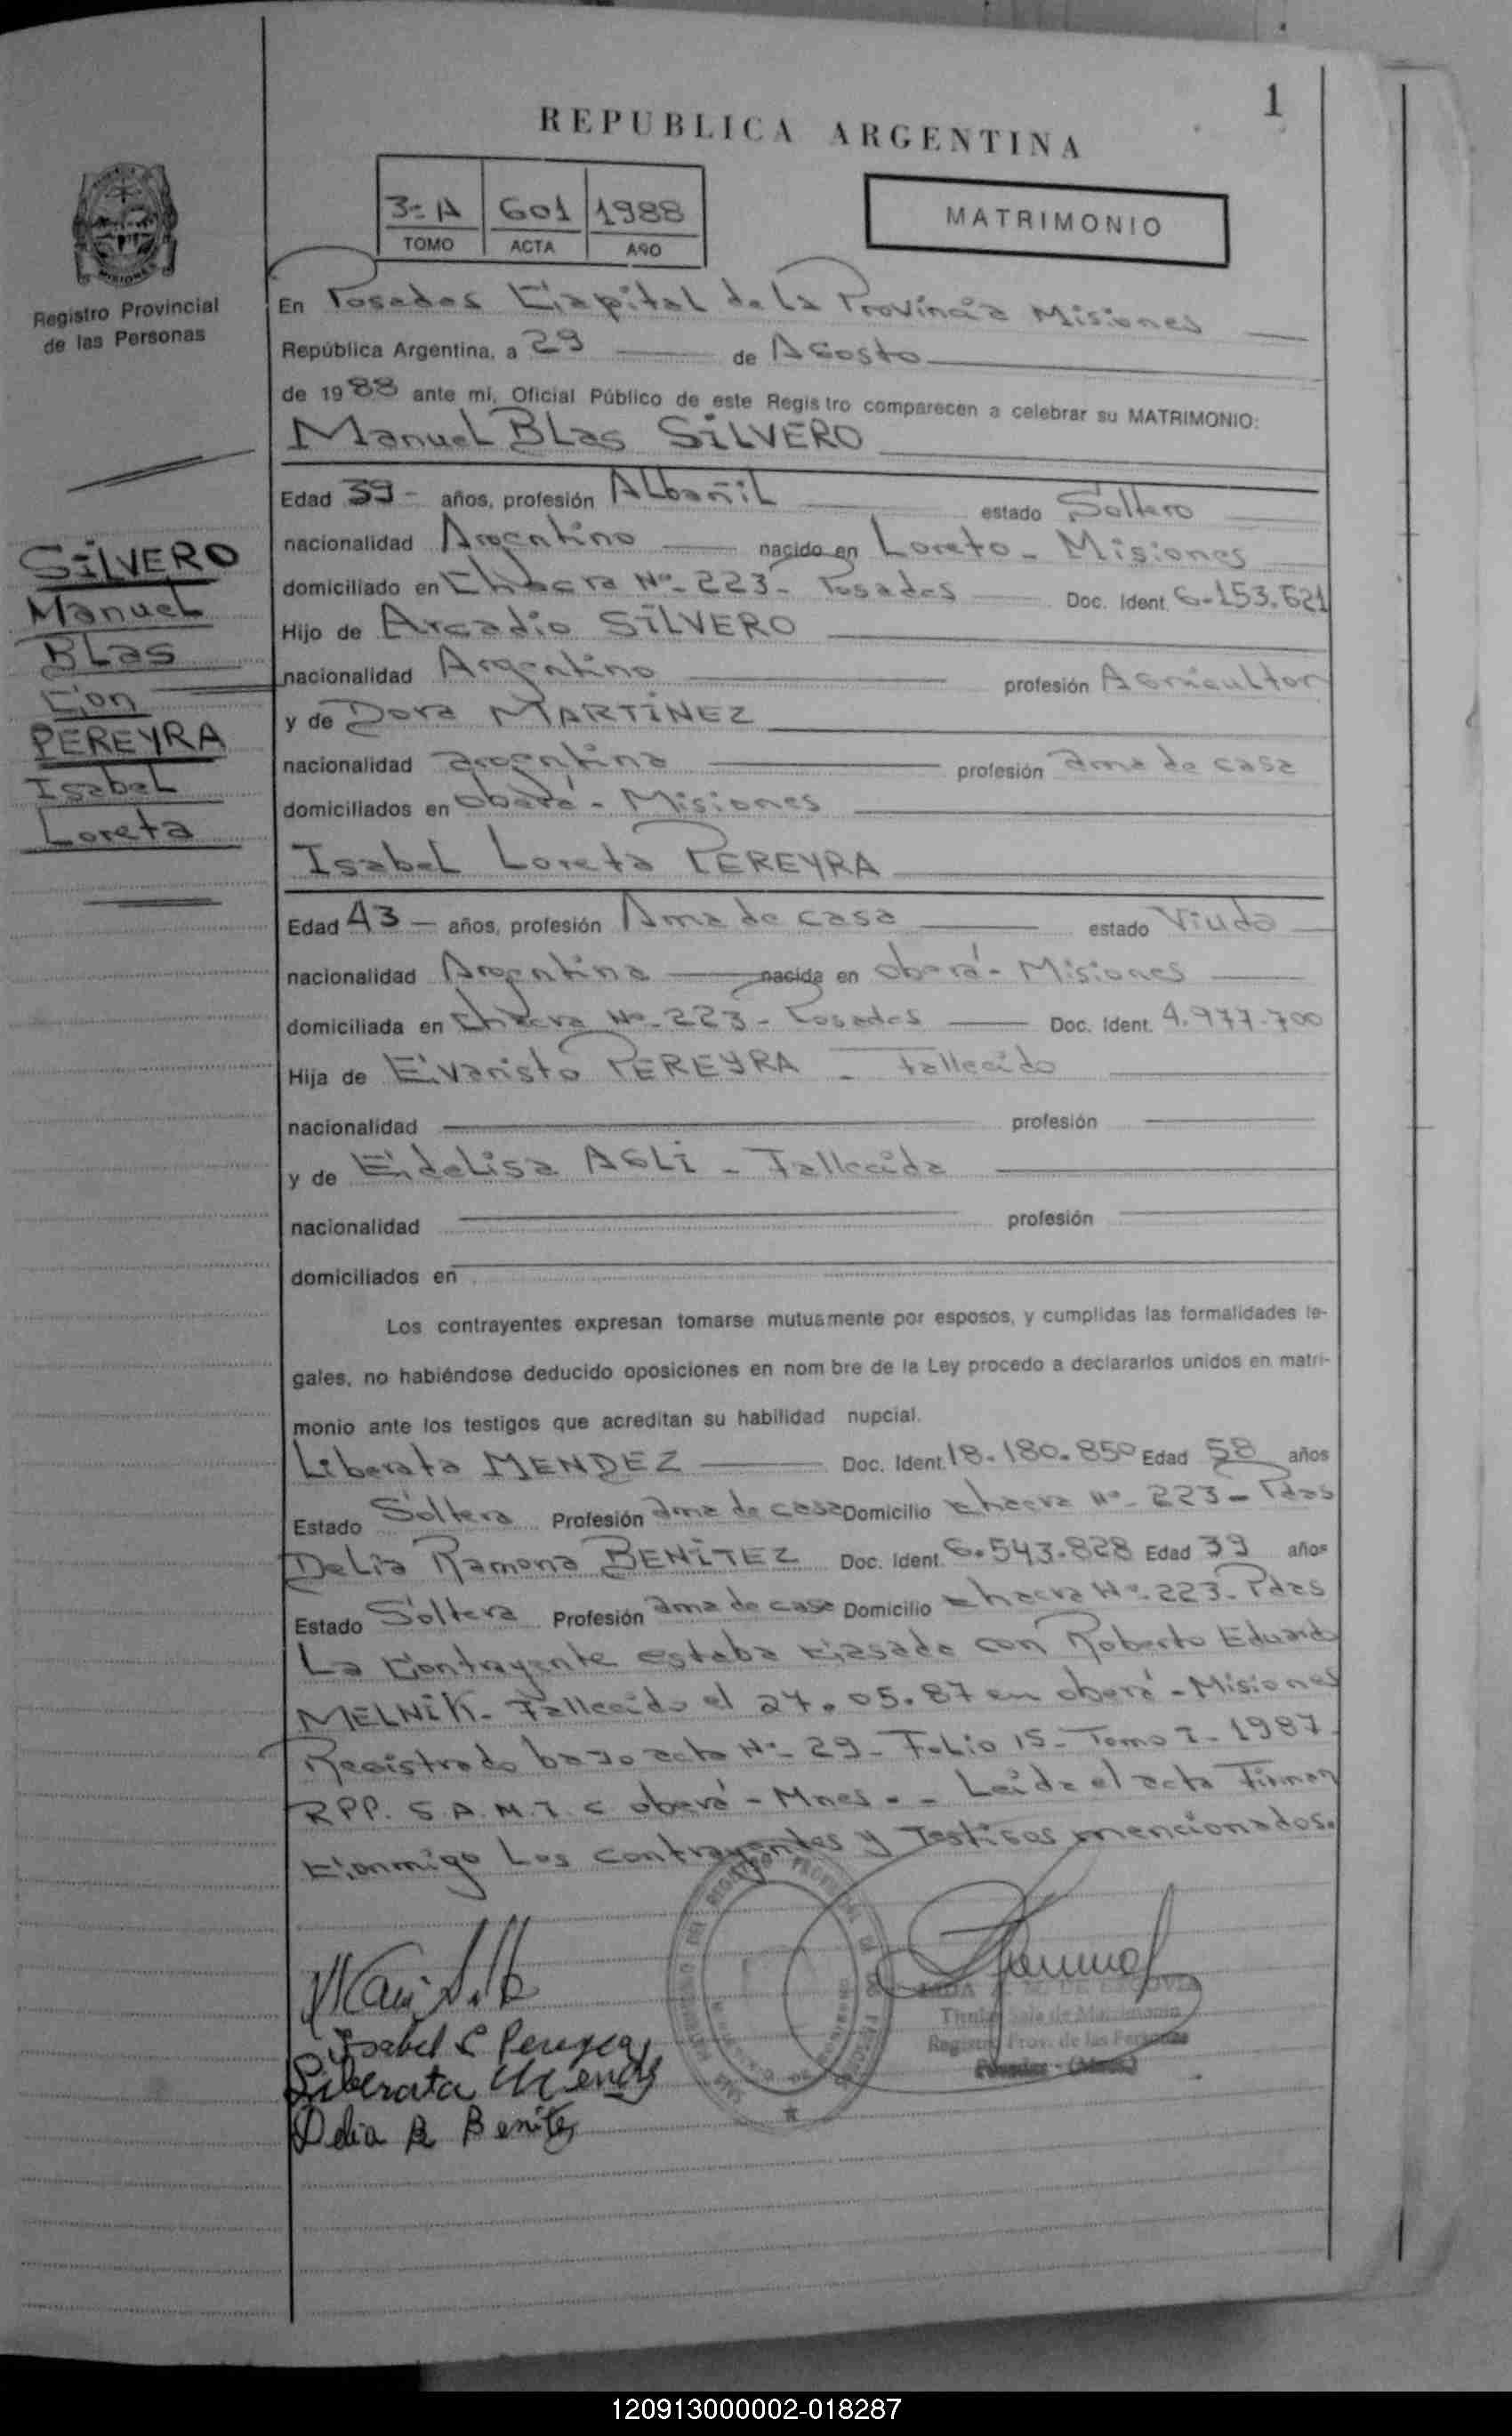 1
REPUBLICA ARGENTINA
3-A 601 1988
TOMO ACTA AÑO
MATRIMONIO
MISIONES
Registro Provincial
de las Personas
En Posadas Capital de la Provincia Misiones
República Argentina, a 29 de Agosto
de 1988 ante mi, Oficial Público de este Registro comparecen a celebrar su MATRIMONIO:
Manuel BLas SILVERO
Edad 39- años, profesión ALbañiL estado Soltero
nacionalidad Argentino nacido en Loreto - Misiones
domiciliado en Chacra Nº- 223 - Posadas Doc. Ident. 6-153.621
Hijo de Arcadio SILVERO
nacionalidad Argentino profesión Agricultor
y de Dora MARTINEZ
nacionalidad argentina profesión ama de casa
domiciliados en oberá - Misiones
Isabel Loreta PEREYRA
Edad 43 - años, profesión Ama de casa estado Viuda
nacionalidad Argentina nacida en oberá - Misiones
domiciliada en Chacra Nº- 223 - Posadas Doc. Ident. 4.977.700
Hija de Evaristo PEREYRA - Fallecido
nacionalidad profesión
y de EdeLisa AGLI - Fallecida
nacionalidad profesión
domiciliados en
Los contrayentes expresan tomarse mutuamente por esposos, y cumplidas las formalidades le-
gales, no habiéndose deducido oposiciones en nom bre de la Ley procedo a declararlos unidos en matri-
monio ante los testigos que acreditan su habilidad nupcial.
Liberata MENDEZ Doc. Ident. 18.180.850 Edad 58 años
Estado Soltera Profesión ama de casa Domicilio chacra Nº- 223 - Pdas
DeLia Ramona BENITEZ Doc. Ident. 6.543.828 Edad 39 años
Estado Soltera Profesión ama de casa Domicilio chacra Nº- 223 - Pdas
La Contrayente estaba Casada con Roberto Eduardo
MELNIK - Fallecido el 27.05.87 en oberá - Misiones
Registrado bajo acta Nº- 29 - FoLio 15 - Tomo I - 1987.
RPP. oberá - Mnes. - Leida el acta Firman
Conmigo Los contrayentes y Testigos mencionados.
SILVERO
Manuel
BLas
Con
PEREYRA
IsabeL
Loreta
Isabel L Pereyra
Liberata Mendez
Delia R Benitez
Titular Sala de Matrimonio
Registro Prov. de las Personas
Posadas - (Mnes.)
120913000002-018287